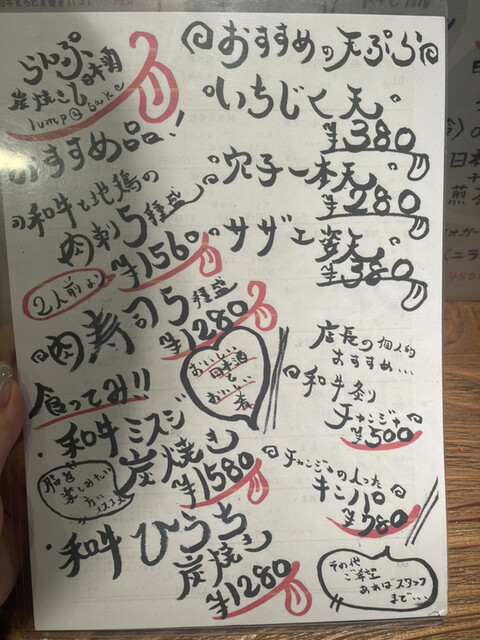 らんぷ
日本酒
炭焼きし
lump 日 sake
おすすめ品!
和牛と地鶏の
肉刺5種盛
¥1560
2人前より
肉寿司5種盛
¥1280
食ってみ!!
・和牛ミスジ
炭焼き
¥1580
脂を
楽しみたい
方に
オススメ
・和牛ひうち
炭焼き
¥1280
おすすめの天ぷら
いちじく天
¥380
穴子一本天
¥280
サザエ姿天
¥380
おいしい
日本酒と
おいしい
店長の個人的
おすすめ…
和牛炙り
チャンジャ
¥500
チャンジャの入った
キンパ
¥780
その他
ご希望
あればスタッフ
まで…
日本
煎
バニラ